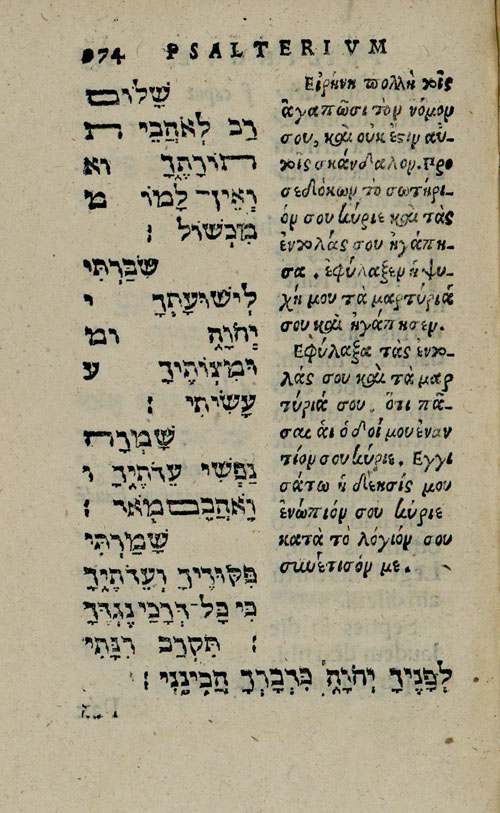 PSALTERIVM
שָׁלוֹם
רָב לְאֹהֲבֵי ת
תוֹרָתֶךָ וא
וְאֵין־ לָמוֹ מ
מִכְשׁוֹל :
שִׂבַּרְתִּי
לִישׁוּעָתְךָ י
יְהֹוָה ומ
וּמִצְוֹתֶיךָ ע
עָשִׂיתִי :
שָׁמְרָה
נַפְשִׁי עֵדֹתֶיךָ ו
וָאֹהֲבֵם מְאֹד :
שָׁמַרְתִּי
פִּקּוּדֶיךָ וְעֵדֹתֶיךָ
כִּי כָל־דְּרָכַי נֶגְדֶּךָ
: תִּקְרַב רִנָּתִי
לְפָנֶיךָ יְהֹוָה כִּדְבָרְךָ הֲבִינֵנִי :
Εἰρήνη πολλὴ τοῖς
ἀγαπῶσι τὸν νόμον
σου, καὶ οὐκ ἔστιν αὐ-
τοῖς σκάνδαλον. προ
σεδόκων τὸ σωτήρι-
όν σου κύριε καὶ τὰς
ἐντολάς σου ἠγάπη-
σα. ἐφύλαξεν ἡ ψυ-
χή μου τὰ μαρτύριά
σου καὶ ἠγάπησεν.
Εφύλαξα τὰς ἐντο-
λάς σου καὶ τὰ μαρ
τύριά σου. ὅτι πᾶ-
σαι ἁι ὁδοί μου ἐναν
τίον σου κύριε. Εγγι
σάτω ἡ δέησίς μου
ἐνώπιόν σου κύριε
κατὰ τὸ λόγιόν σου
συνέτισόν με.